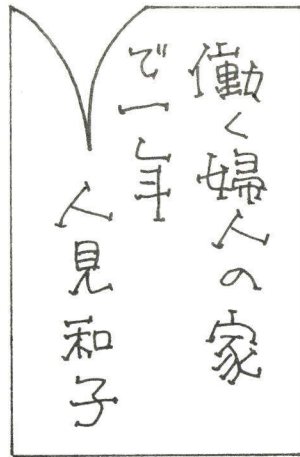 働く婦人の家
で一年
人見和子